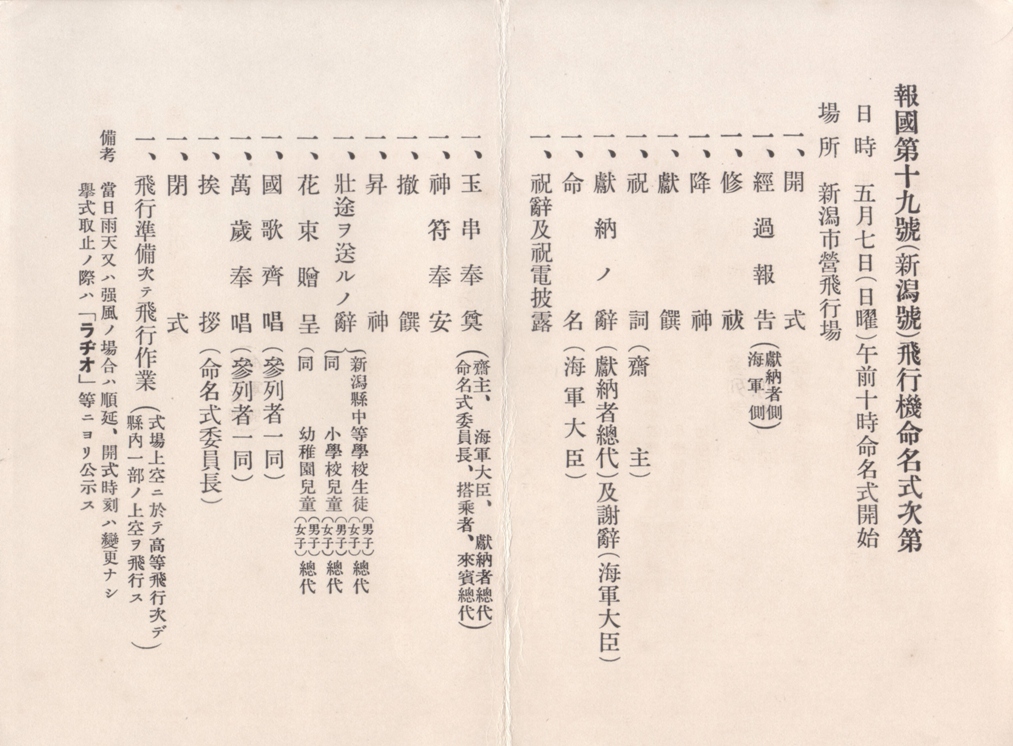 報國第十九號(新潟號)飛行機命名式次第
日時 五月七日(日曜)午前十時命名式開始
場所 新潟市營飛行場
一、開式
一、經過報告(獻納者側)(海軍側)
一、修祓
一、降神
一、獻饌
一、祝詞(齋主)
一、獻納ノ辭(獻納者總代)及謝辭(海軍大臣)
一、命名(海軍大臣)
一、祝辭及祝電披露
一、玉串奉奠(齋主、海軍大臣、獻納者總代)
(命名式委員長、搭乘者、來賓總代)
一、神符奉安
一、撤饌
一、昇神
一、壯途ヲ送ルノ辭{新潟縣中等學校生徒(男子)(女子)總代
同 小學校兒童(男子)(女子)總代
一、花束贈呈(同 幼稚園兒童(男子)(女子)總代
一、國歌齊唱(參列者一同)
一、萬歲奉唱(參列者一同)
一、挨拶(命名式委員長)
一、閉式
一、飛行準備次テ飛行作業(式場上空ニ於テ高等飛行次デ
縣內一部ノ上空ヲ飛行ス)
備考 當日雨天又ハ强風ノ場合ハ順延、開式時刻ハ變更ナシ
擧式取止ノ際ハ「ラヂオ」等ニヨリ公示ス